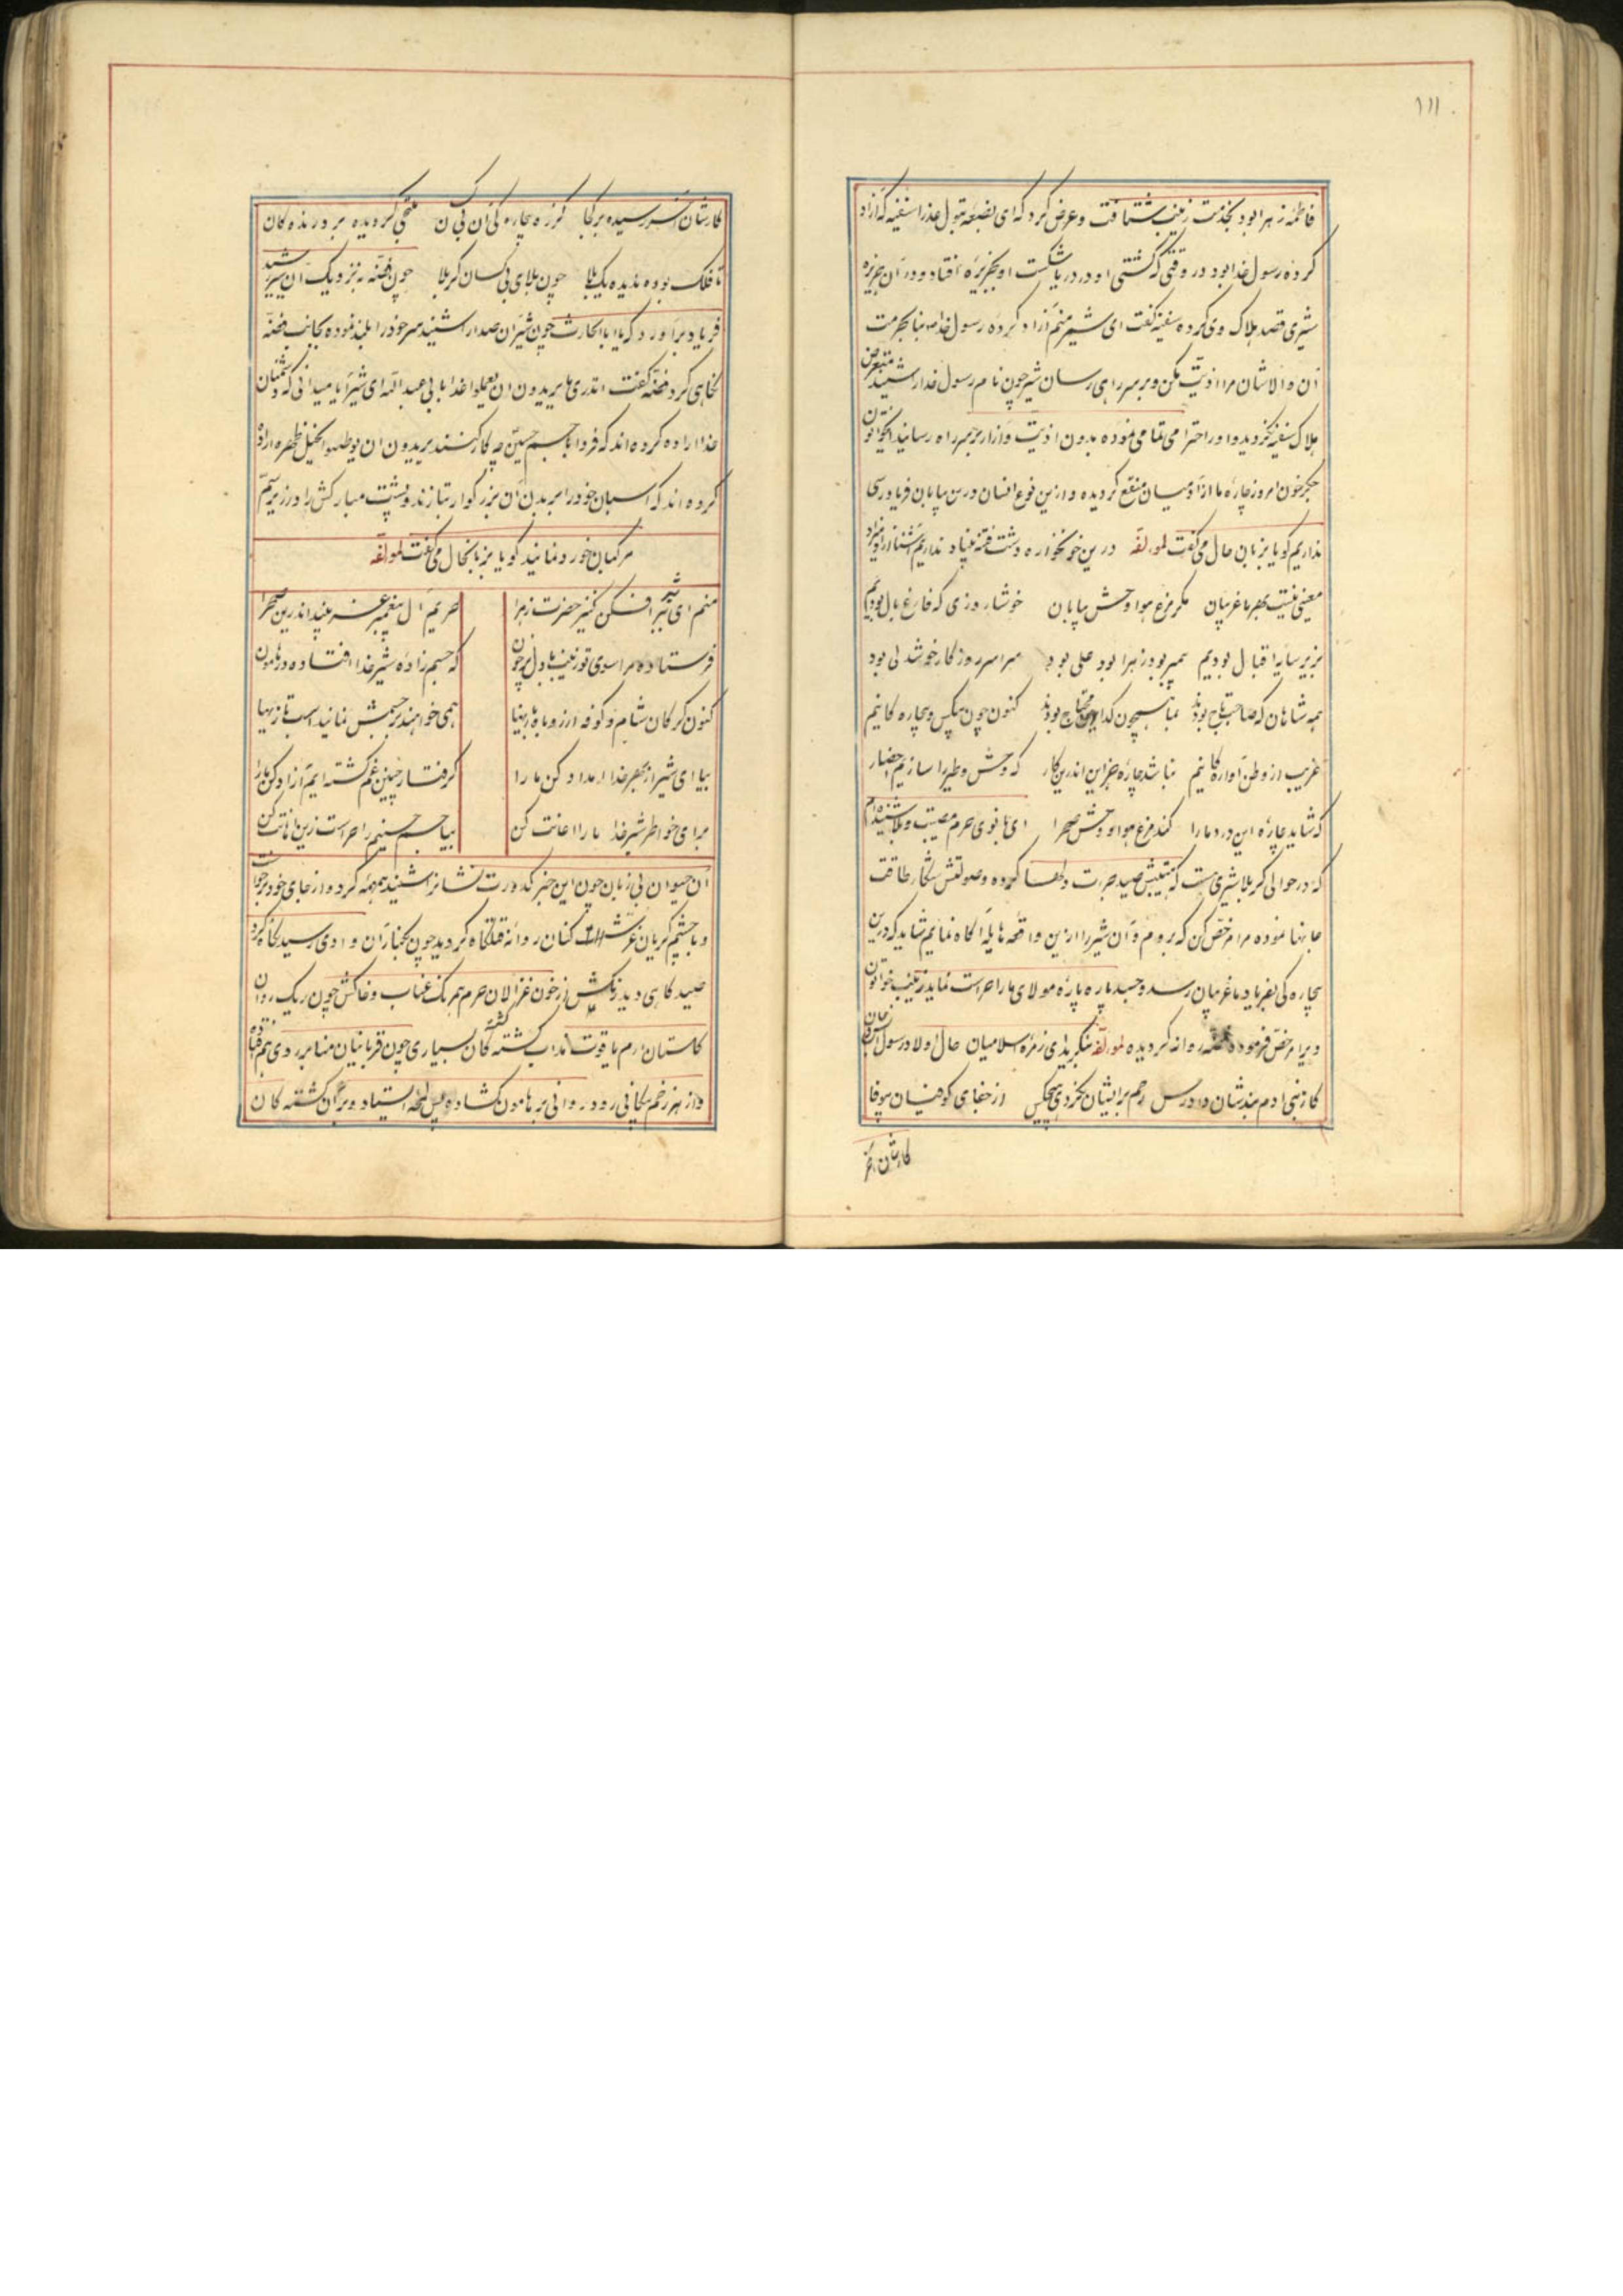 ۱۱۱
فاطمه زهرا بود بخدمت زینب شتافت و عرض کرد که ای بضعه بتول عذرا سفینه که ازاد
کرده رسول خدا بود در وقتی که کشتی او در دریا شکست او بجزیره افتاد و در آن جزیره
شیری قصد هلاک وی کرده سفینه گفت ای شیر منم ازاد کرده رسول خدا بحرمت
آن والاشان مرا اذیت مکن و بر سر راهی رسان شیر چون نام رسول خدا را شنید متعرض
هلاک سفینه نگردید و او را احترامی تمامی نموده بدون اذیت و ازار بر سر راه رسانید ای خواتون
جگر خون امروز چاره ما از آدمیان منقطع گردیده و ازین نوع انسان درین بیابان فریادرسی
نداریم گویا بزبان حال می گفت لمولفه درین خونخواره دشت فتنه بنیاد نداریم آشنا از آدمیزاد
معینی نیست بهر ما غریبان مگر مرغ هوا وحش بیابان خوشا روزی که فارغ بال بودیم
بزیر سایه اقبال بودیم پیمبر بود زهرا بود علی بود سراسر روزگار خوشدلی بود
همه شاهان که صاحب تاج بودند بما همچون گدا محتاج بودند کنون چون بیکس و بیچاره کانیم
غریب از وطن آواره کانیم نباشد چاره جز این اندرین کار که وحش و طیر را سازیم احضار
که شاید چاره این درد ما را کند مرغ هوا و وحش صحرا ای بانوی حرم مصیبت و بلا شنیده ام
که در حوالی کربلا شیری هست که هیبتش صید جرءت دلها کرده و صولتش شکار طاقت
جانها نموده مرا مرخص کن که بروم و آن شیر را ازین واقعه هایله آگاه نمایم شاید که درین
بیچاره کی بفریاد ما غریبان رسد و جسد پاره پاره مولای ما را حراست نماید زینب خواتون
ویرا مرخص فرمود فضه روانه گردیده لمولفه بنگرید ای زمره اسلامیان حال اولاد رسول انس و جان
کز بنی ادم نبد شان دادرس رحم بر ایشان نکردی هیچکس از جفای کوفیان بیوفا
کارشان آخر
کارشان آخر رسیده بر کجا کز ره بیچاره کی آن بی کسان ملتجی گردیده بر درنده کان
تا فلک بوده ندیده یک بلا چون بلای بی کسان کربلا چون فضه به نزدیک آن شیر رسید
فریاد برآورد که یا ابا الحارث چون شیر آن صدا را شنید سر خود را بلند نموده بجانب فضه
نگاهی کرد فضه گفت اتدری ما یریدون ان یعملوا غدا بابی عبد الله ای شیر آیا میدانی که دشمنان
خدا اراده کرده اند که فردا با جسم حسین چه کار کنند یریدون ان یوطئوا الخیل ظهره اراده
کرده اند که اسبان خود را بر بدن آن بزرگوار بتازند و پشت مبارکش را در زیر سم
مرکبان خورد نمایند گویا بزبان حال می گفت لمولفه
منم ای شیر افکن کنیز حضرت زهرا حریم آل پیغمبر غریبند اندرین صحرا
فرستاده مرا سوی تو زینب با دل پر خون که جسم زاده شیر خدا افتاده در هامون
کنون گرگان شام و کوفه از روباه بازیها همی خواهند بر جسمش نمایند اسب تازیها
بیا ای شیر از بهر خدا امداد کن ما را گرفتار چنین غم گشته ایم آزاد کن ما را
برای خواطر شیر خدا ما را اعانت کن بیا جسم حسینم را حراست زین اهانت کن
ان حیوان بی زبان چون این خبر کدورت نشانرا شنید همهمه کرد و از جای خود برخواست
و با چشم گریان غرش کنان روانه قتلگاه گردید چون بکنار آن وادی رسید نگاه کرد
صید گاهی دید ریگش از خون غزالان حرم همرنگ عناب و خاکش چون ریگ روان
گلستان ارم یاقوت مذاب کشته کان بسیاری چون قربانیان منا بر روی هم فتاده
و از هر زخم پیکانی رود روانی بر هامون گشاده پس لمحه ایستاد و بر آن کشته کان